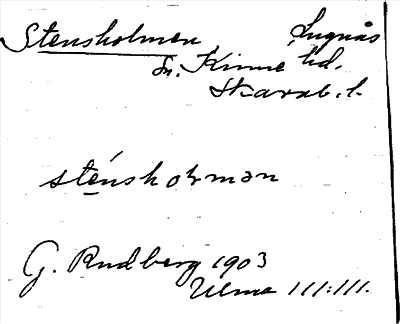 Stensholmen Lugnås
Sn. Kinne hd.
Skarab. l.
sténsholmən
G. Rudberg 1903
Ulma 111:111.